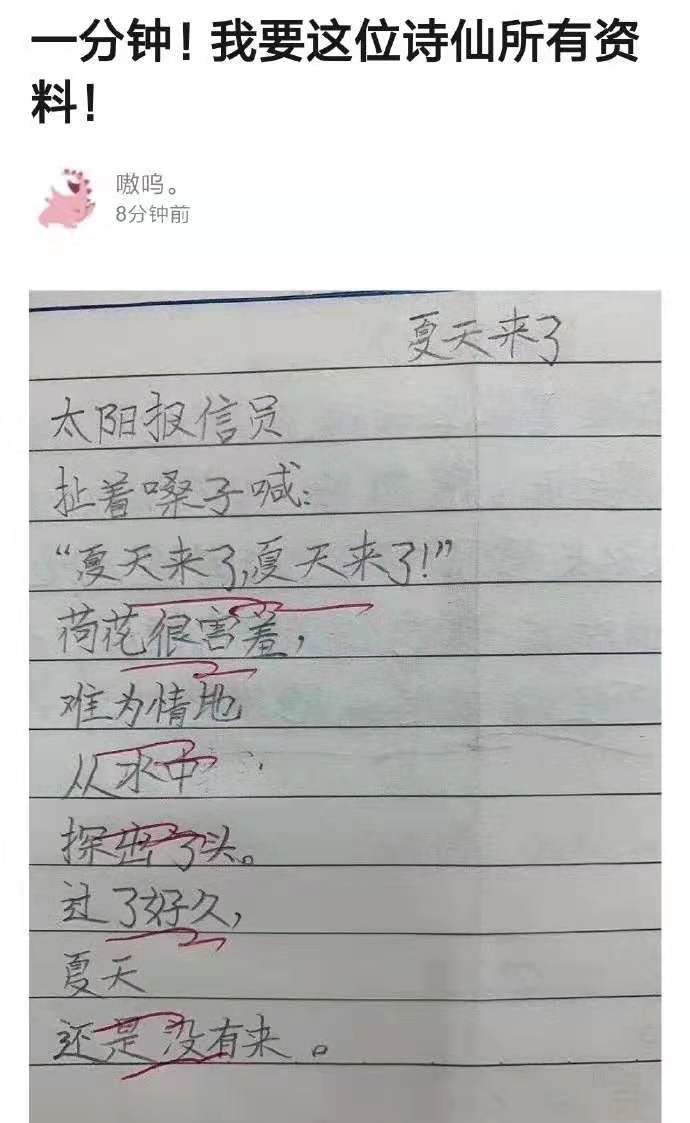 一分钟！我要这位诗仙所有资
料！
嗷呜。
8分钟前
夏天来了
太阳报信员
扯着嗓子喊：
“夏天来了,夏天来了！”
荷花很害羞，
难为情地
从水中
探出了头。
过了好久，
夏天
还是没有来。